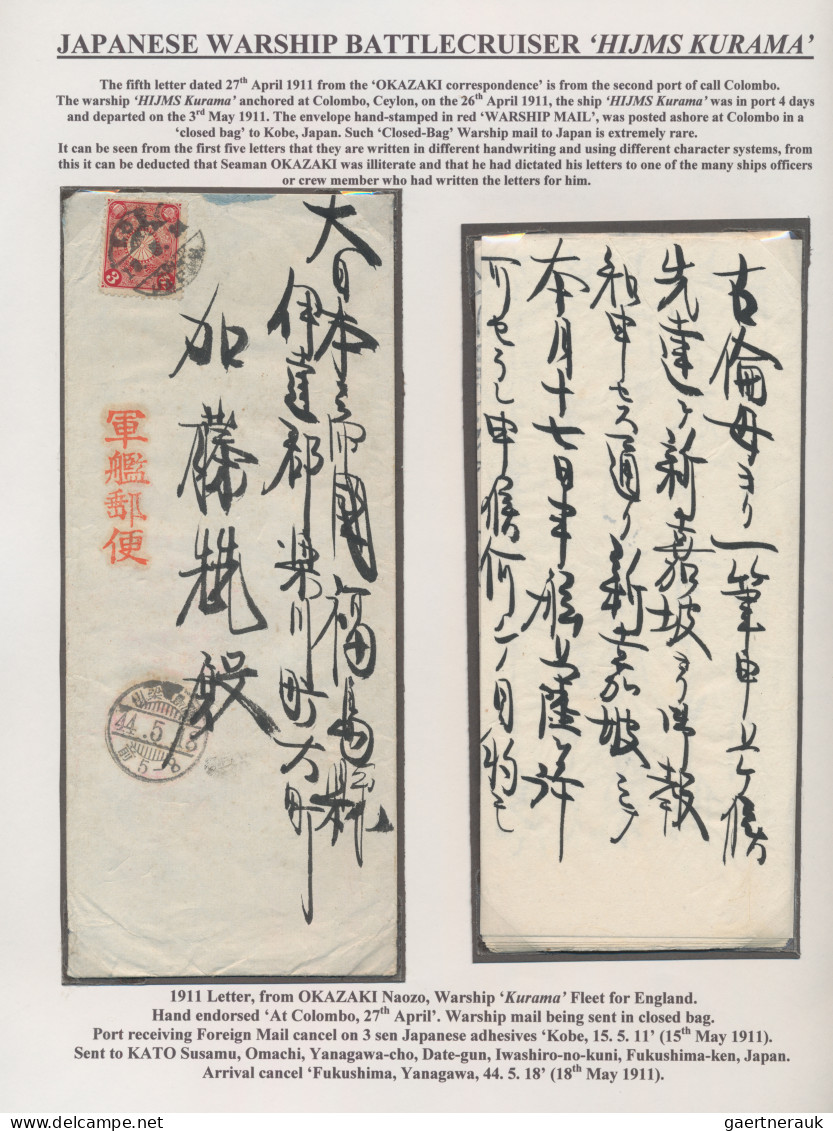 JAPANESE WARSHIP BATTLECRUISER ‘HIJMS KURAMA’
The fifth letter dated 27th April 1911 from the ‘OKAZAKI correspondence’ is from the second port of call Colombo.
The warship ‘HIJMS Kurama’ anchored at Colombo, Ceylon, on the 26th April 1911, the ship ‘HIJMS Kurama’ was in port 4 days
and departed on the 3rd May 1911. The envelope hand-stamped in red ‘WARSHIP MAIL’, was posted ashore at Colombo in a
‘closed bag’ to Kobe, Japan. Such ‘Closed-Bag’ Warship mail to Japan is extremely rare.
It can be seen from the first five letters that they are written in different handwriting and using different character systems, from
this it can be deducted that Seaman OKAZAKI was illiterate and that he had dictated his letters to one of the many ships officers
or crew member who had written the letters for him.
大日本岩代國福島縣
伊達郡梁川町大町
加藤 殿
軍艦郵便
3
44.5.18
前5-8
古倫母ヨリ一筆申上ケ候
先達テ新嘉坡ヨリ御報
知申セシ通リ新嘉坡ニテ
本月十七日
1911 Letter, from OKAZAKI Naozo, Warship ‘Kurama’ Fleet for England.
Hand endorsed ‘At Colombo, 27th April’. Warship mail being sent in closed bag.
Port receiving Foreign Mail cancel on 3 sen Japanese adhesives ‘Kobe, 15. 5. 11’ (15th May 1911).
Sent to KATO Susamu, Omachi, Yanagawa-cho, Date-gun, Iwashiro-no-kuni, Fukushima-ken, Japan.
Arrival cancel ‘Fukushima, Yanagawa, 44. 5. 18’ (18th May 1911).
gaertnerauk